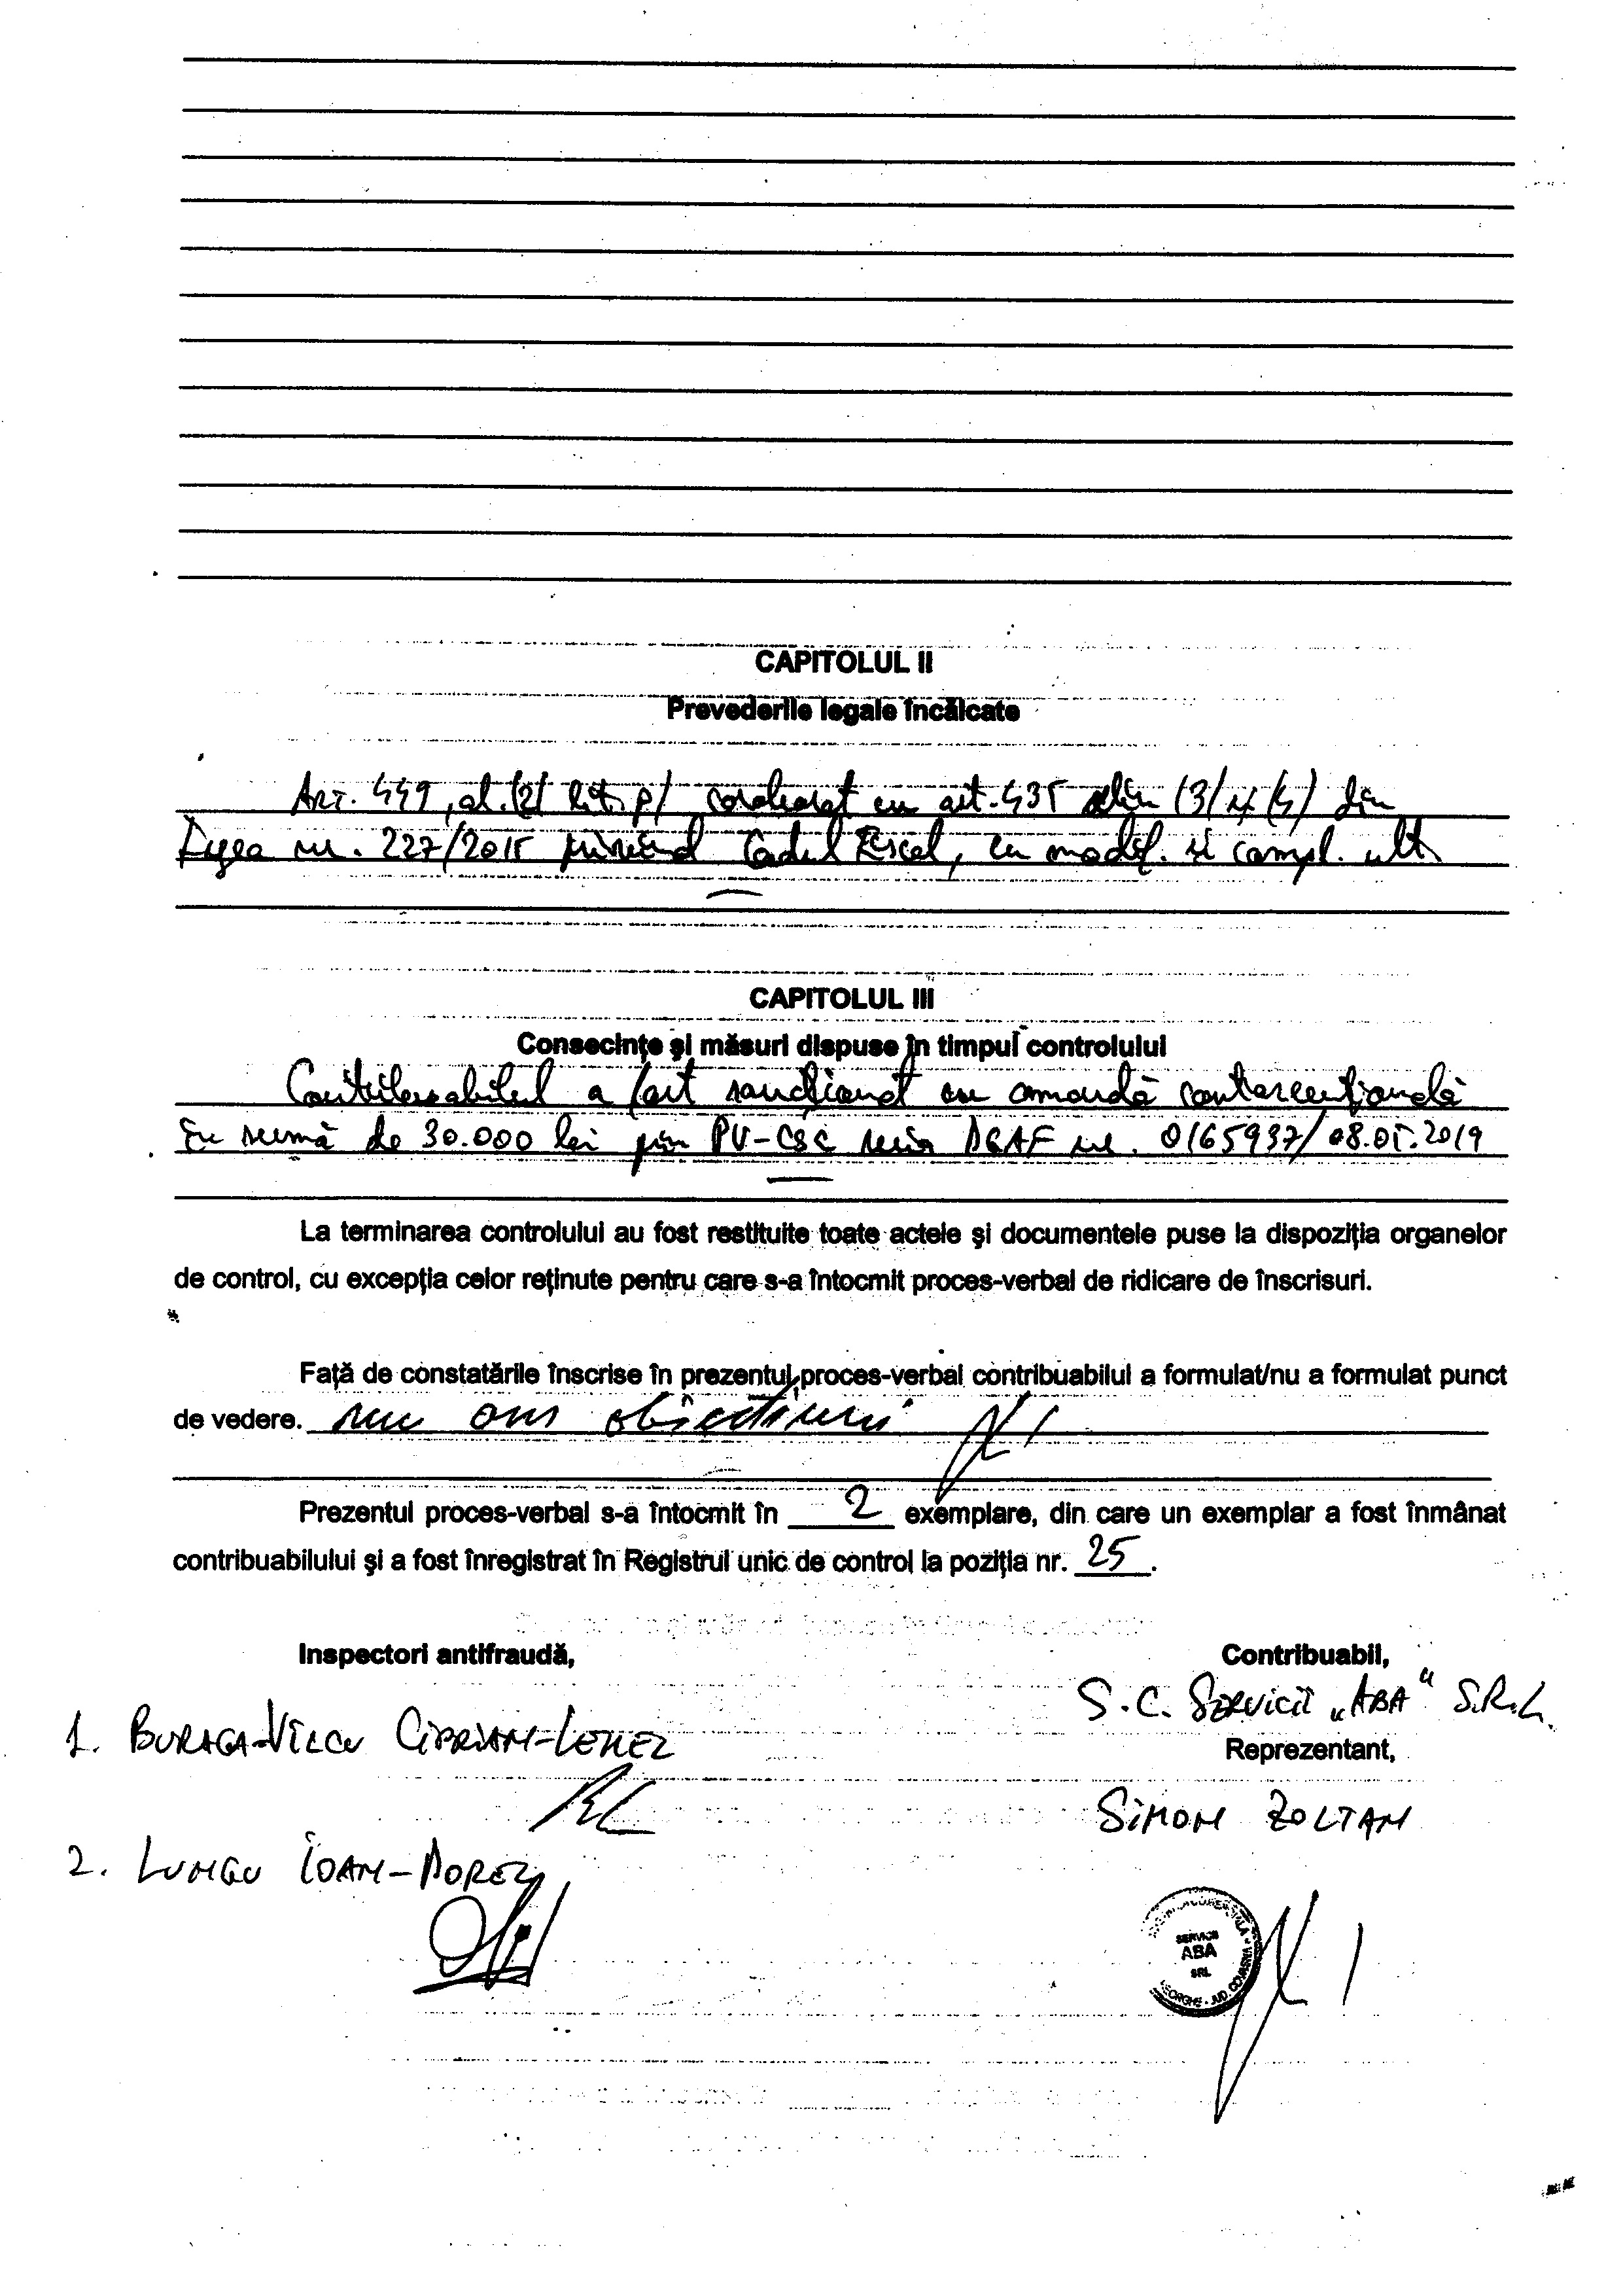 CAPITOLUL II
Prevederile legale încălcate
Art. 449, al. (2) lit. p) coroborat cu art. 435 alin (3) și (4) din
Legea nr. 227/2015 privind Codul Fiscal, cu modif. și compl. ult.
CAPITOLUL III
Consecințe și măsuri dispuse în timpul controlului
Contribuabilul a fost sancționat cu amendă contravențională
în sumă de 30.000 lei prin PV-CSC seria DGAF nr. 0165937/08.05.2019
La terminarea controlului au fost restituite toate actele și documentele puse la dispoziția organelor
de control, cu excepția celor reținute pentru care s-a întocmit proces-verbal de ridicare de înscrisuri.
Față de constatările înscrise în prezentul proces-verbal contribuabilul a formulat/nu a formulat punct
de vedere. nu am obiectiuni
Prezentul proces-verbal s-a întocmit în 2 exemplare, din care un exemplar a fost înmânat
contribuabilului și a fost înregistrat în Registrul unic de control la poziția nr. 25.
Inspectori antifraudă,
Contribuabil,
S.C. SERVICII „ABA" S.R.L.
1. BURAGA-VÎLCU CIPRIAN-IONEL
Reprezentant,
SIMON ZOLTAN
2. LUNGU IOAN-DOREL
SERVICII
ABA
SRL
GHEORGHE - JUD. COVASNA